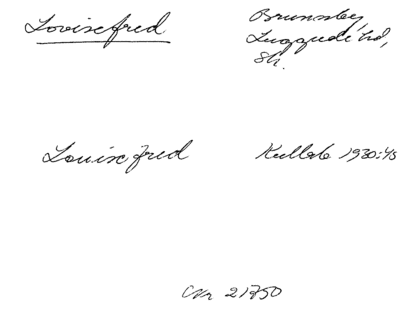 Lovisefred
Brunnsby,
Luggude hd,
Sk.
Louisefred
Kullab 1930:45
CVn 21/7 50